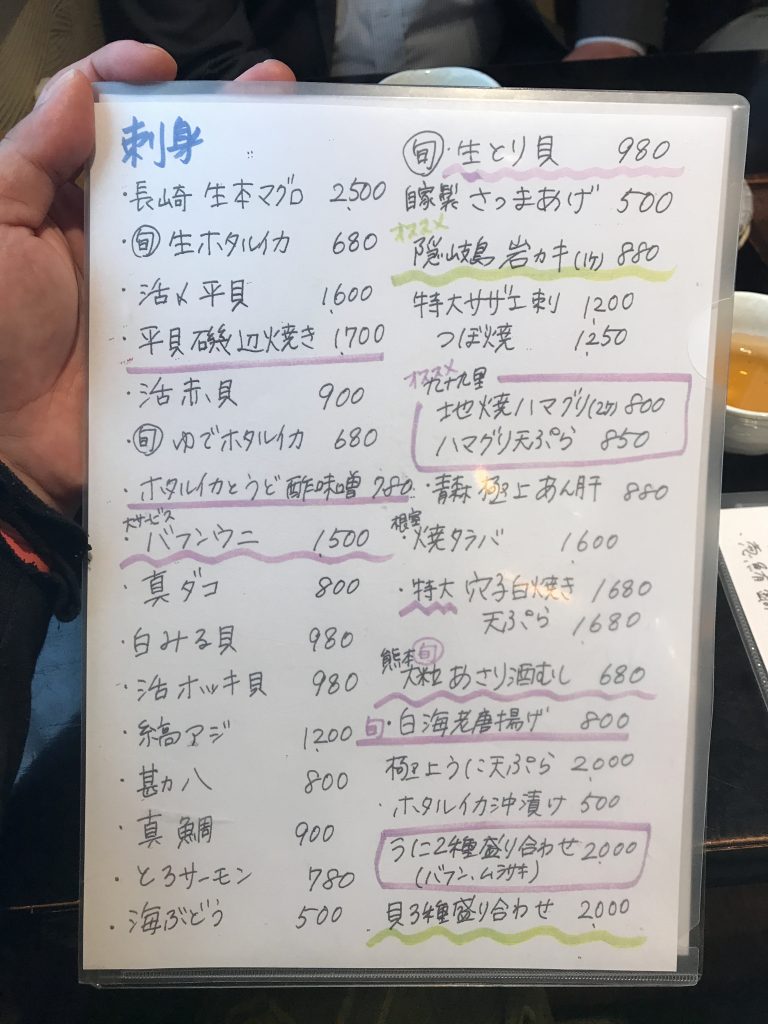 刺身
・長崎 生本マグロ 2,500
・旬 生ホタルイカ 680
・活〆平貝 1,600
・平貝磯辺焼き 1,700
・活赤貝 900
・旬 ゆでホタルイカ 680
・ホタルイカとうど酢味噌 780
大サービス
・バフンウニ 1,500
・真ダコ 800
・白みる貝 980
・活ホッキ貝 980
・縞アジ 1,200
・甚カ八 800
・真鯛 900
・とろサーモン 780
・海ぶどう 500
旬・生とり貝 980
自家製 さつまあげ 500
オススメ
隠岐島 岩カキ(1ケ) 880
特大サザエ刺 1,200
つぼ焼 1,250
オススメ 九十九里
地焼ハマグリ(2ケ) 800
ハマグリ天ぷら 850
・青森 極上あん肝 880
根室
・焼タラバ 1600
・特大 穴子白焼き 1,680
天ぷら 1,680
熊本 旬
大粒 あさり酒むし 680
旬・白海老唐揚げ 800
極上うに天ぷら 2,000
・ホタルイカ沖漬け 500
うに2種盛り合わせ 2,000
(バフン、ムラサキ)
貝3種盛り合わせ 2,000